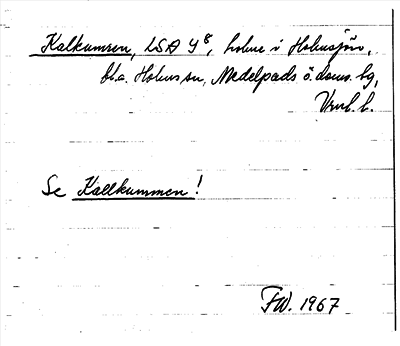 Kalkumren, LSA Y8, holme i Holmsjön,
bl.a. Holms sn, Medelpads ö. doms. bg,
Vnrl. l.
Se Kallkummen!
FW. 1967